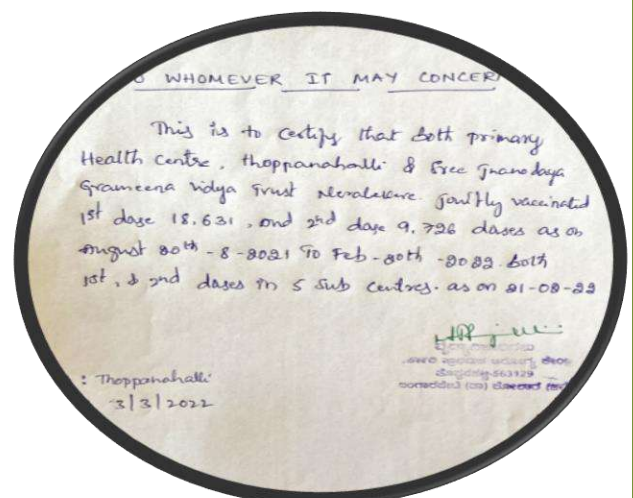 O WHOMEVER IT MAY CONCER
This is to certify that both primary
Health Centre, Thoppanahalli & Sree Gnanodaya
Grameena Vidya Trust Neralekere. Jointly vaccinated
1st dose 18.631, and 2nd dose 9.726 doses as on
August 20th-8-2021 To Feb-20th-2022. both
1st, & 2nd doses in 5 Sub Centres. as on 21-02-22
: Thoppanahalli
3/3/2022